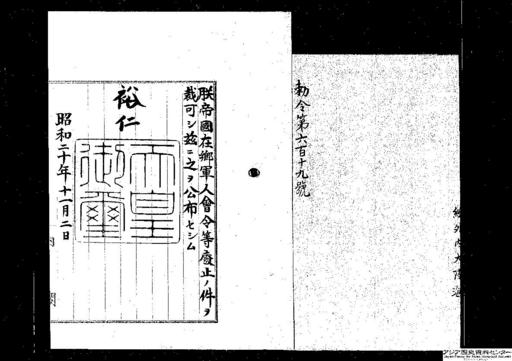 勅令第六百十九號
朕帝國在鄉軍人會令等廢止ノ件ヲ
裁可シ玆ニ之ヲ公布セシム
裕仁
天皇御璽
昭和二十年十一月二日
アジア歴史資料センター